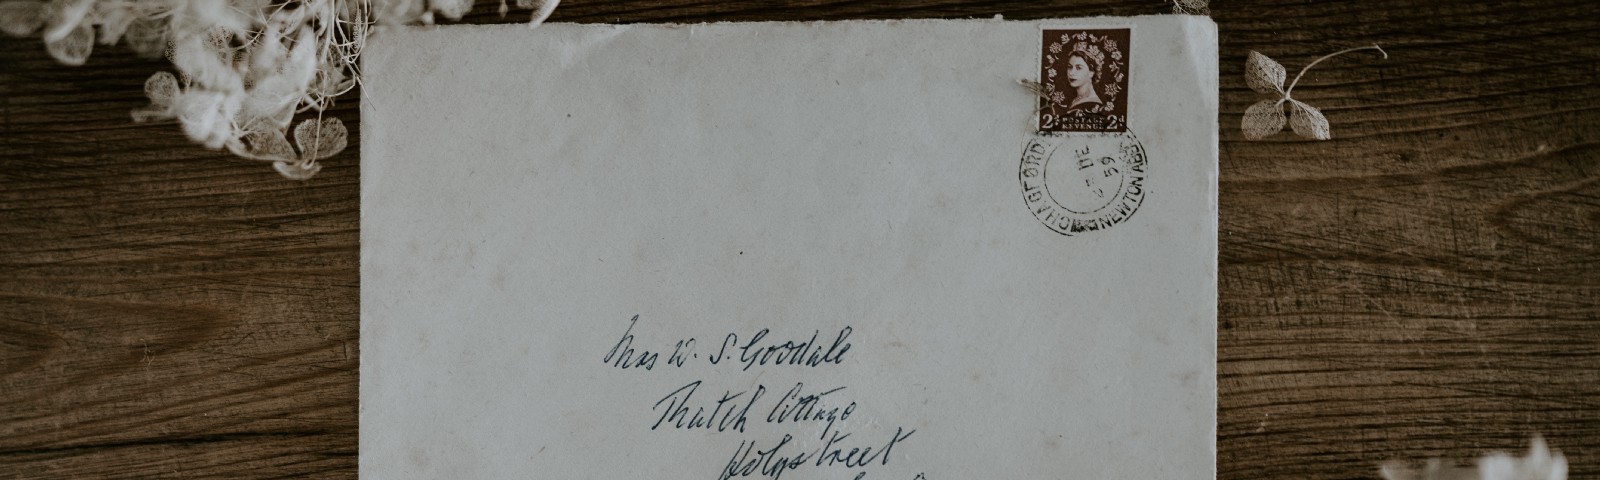 2d POSTAGE REVENUE 2d
CHAGFORD NEWTON ABB
DE
59
Mrs W. S. Goodale
Thatch Cottage
Holystreet